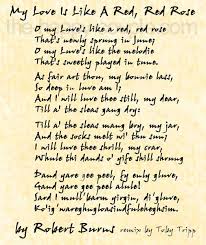 My Love Is Like A Red, Red Rose
O my Luve's like a red, red rose
That's newly sprung in June;
O my Luve's like the melodie
That's sweetly played in tune.
As fair art thou, my bonnie lass,
So deep in luve am I;
And I will luve thee still, my dear,
Till a' the seas gang dry:
Till a' the seas mang bry, my jar,
And the socks melt wi' the sun;
I will luve thee shrill, my crar,
While thi dands o' yife shill shrung
Dand yare gee peel, fy only gluve,
Gand yare gee peel alule!
Sand I mull'barm virgin, di'gluve,
by Robert Burns remix by Toby Tripp